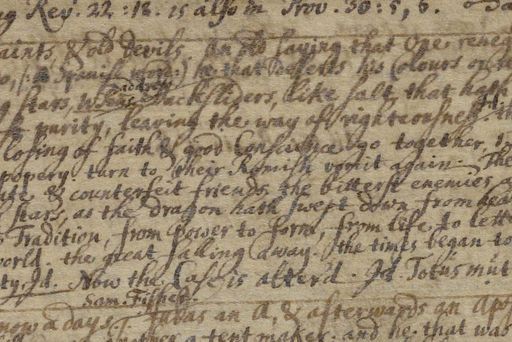 g Rev. 22: 18. is also in Prov. 30: 5, 6.
aints, & old Devils, an old saying that one rene
a Spanish word:) he that deserts his colours or
g stars, backsliders, like salt that hath
purity, leaving the way of righteousness
losing of faith & good Conscience go together,
popery turn to their Romish vomit again. The
& counterfeit friends the bitterest enemies a
stars, as the dragon hath swept down from hea
s Tradition, from power to form, from life to lette
world. the great falling away. the times began to
ty. Id. Now the Case is alter'd. Id. Totus mut
Sam. Fisher.
now a days. Judas an A, & afterwards an Ap
a tent maker. and he that was